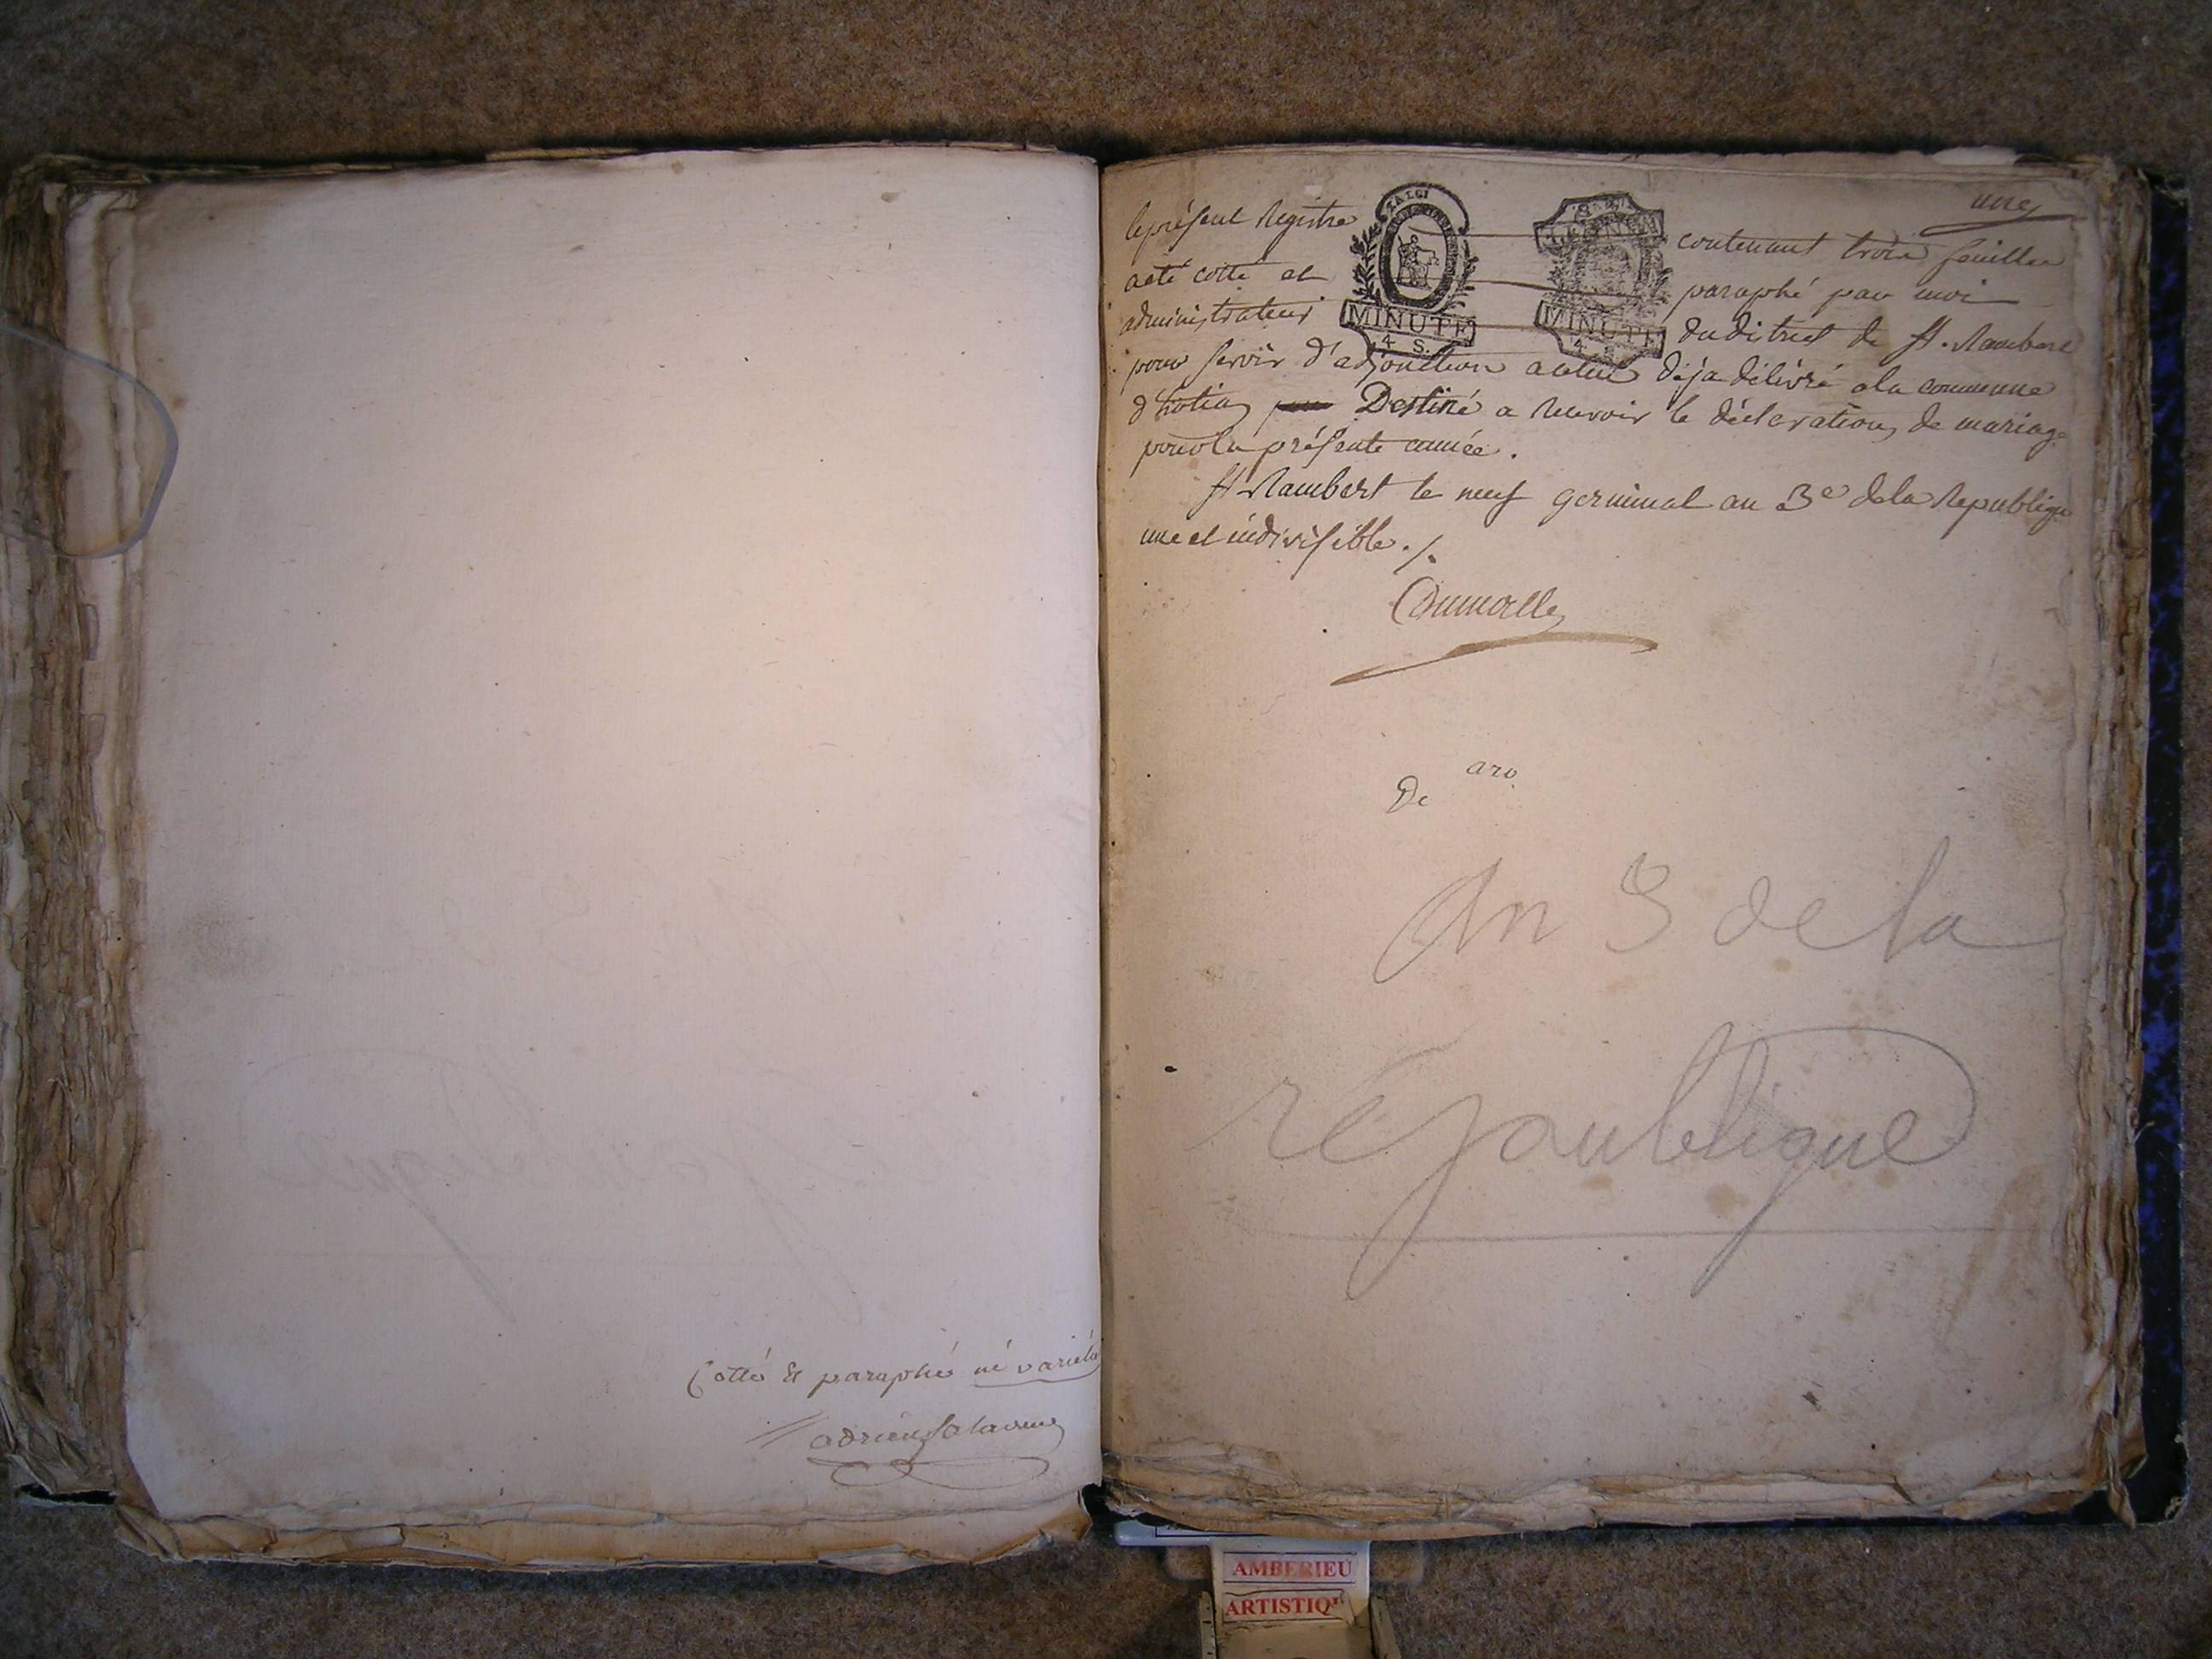 Cotté & paraphé né varietu
adrien Salavin
une
le présent Registre contenant trois feuilles
a eté cotté et paraphé par moi
administrateur du district de St. Rambert
pour servir d'adjonction a celui déja délivré a la commune
Destiné a recevoir le déclaration de mariage
pour la présente année.
St Rambert le neuf germinal an 3e de la Republique
une et indivisible ./.
LA LOI
MINUTE
4 S.
MINUTE
4 S.
De
aro
An 3 de la
république
AMBERIEU
ARTISTIQ